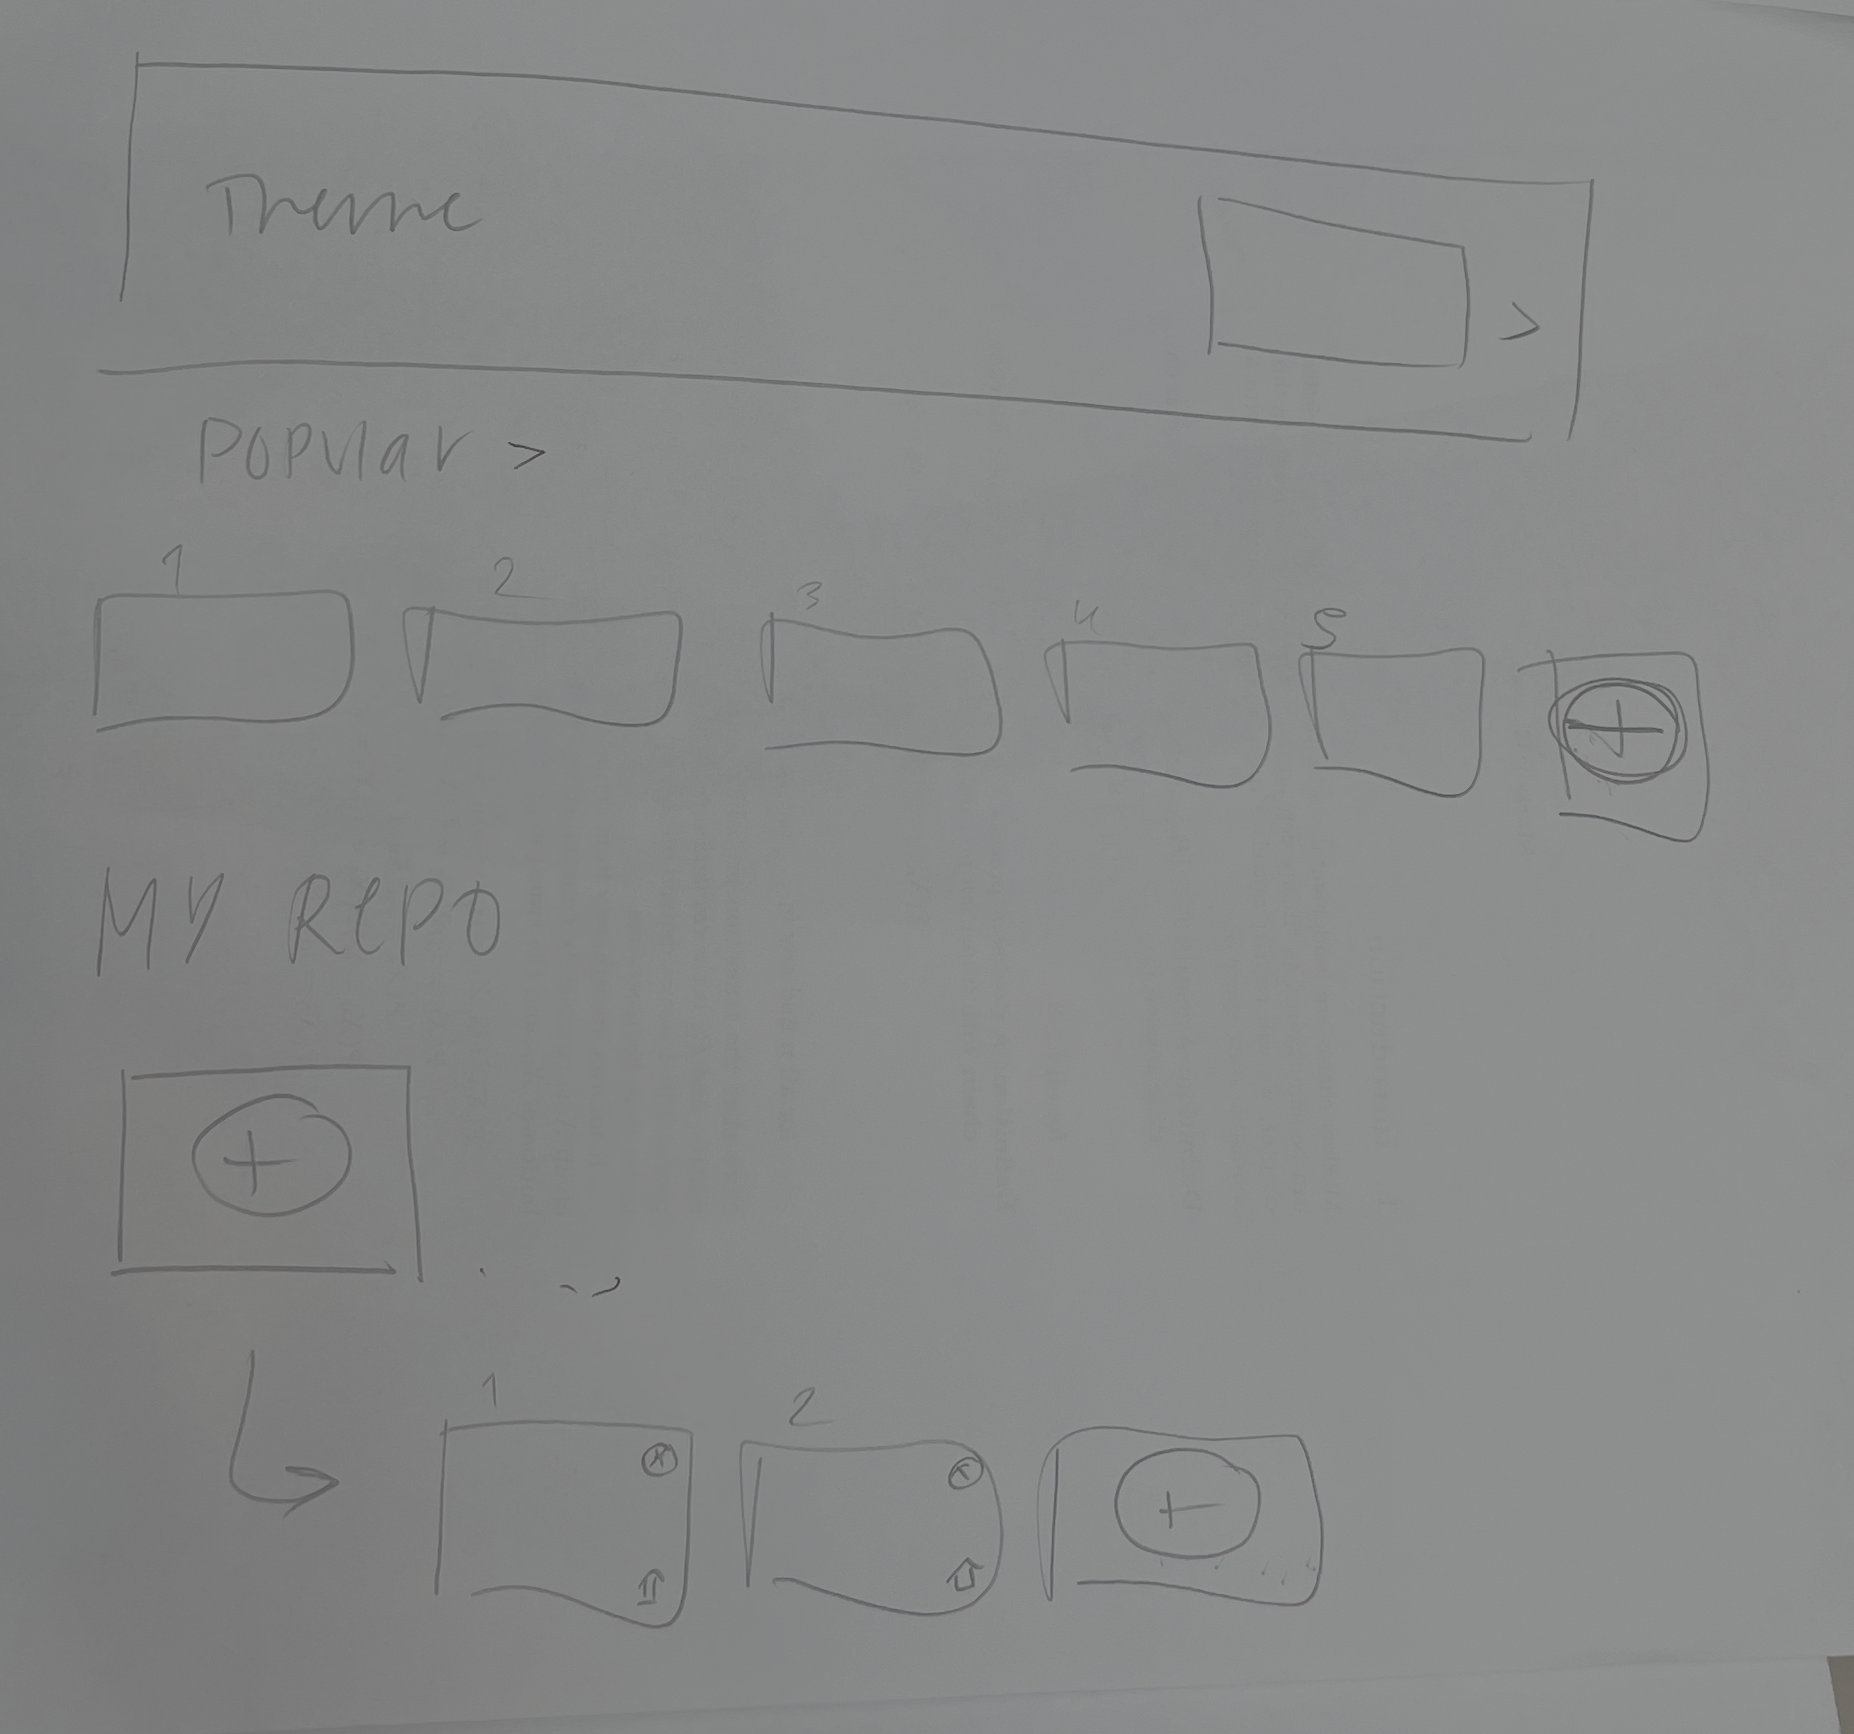 Theme
>
Popular >
1 2 3 4 5
+
MY RePO
+
1 2
x x
+